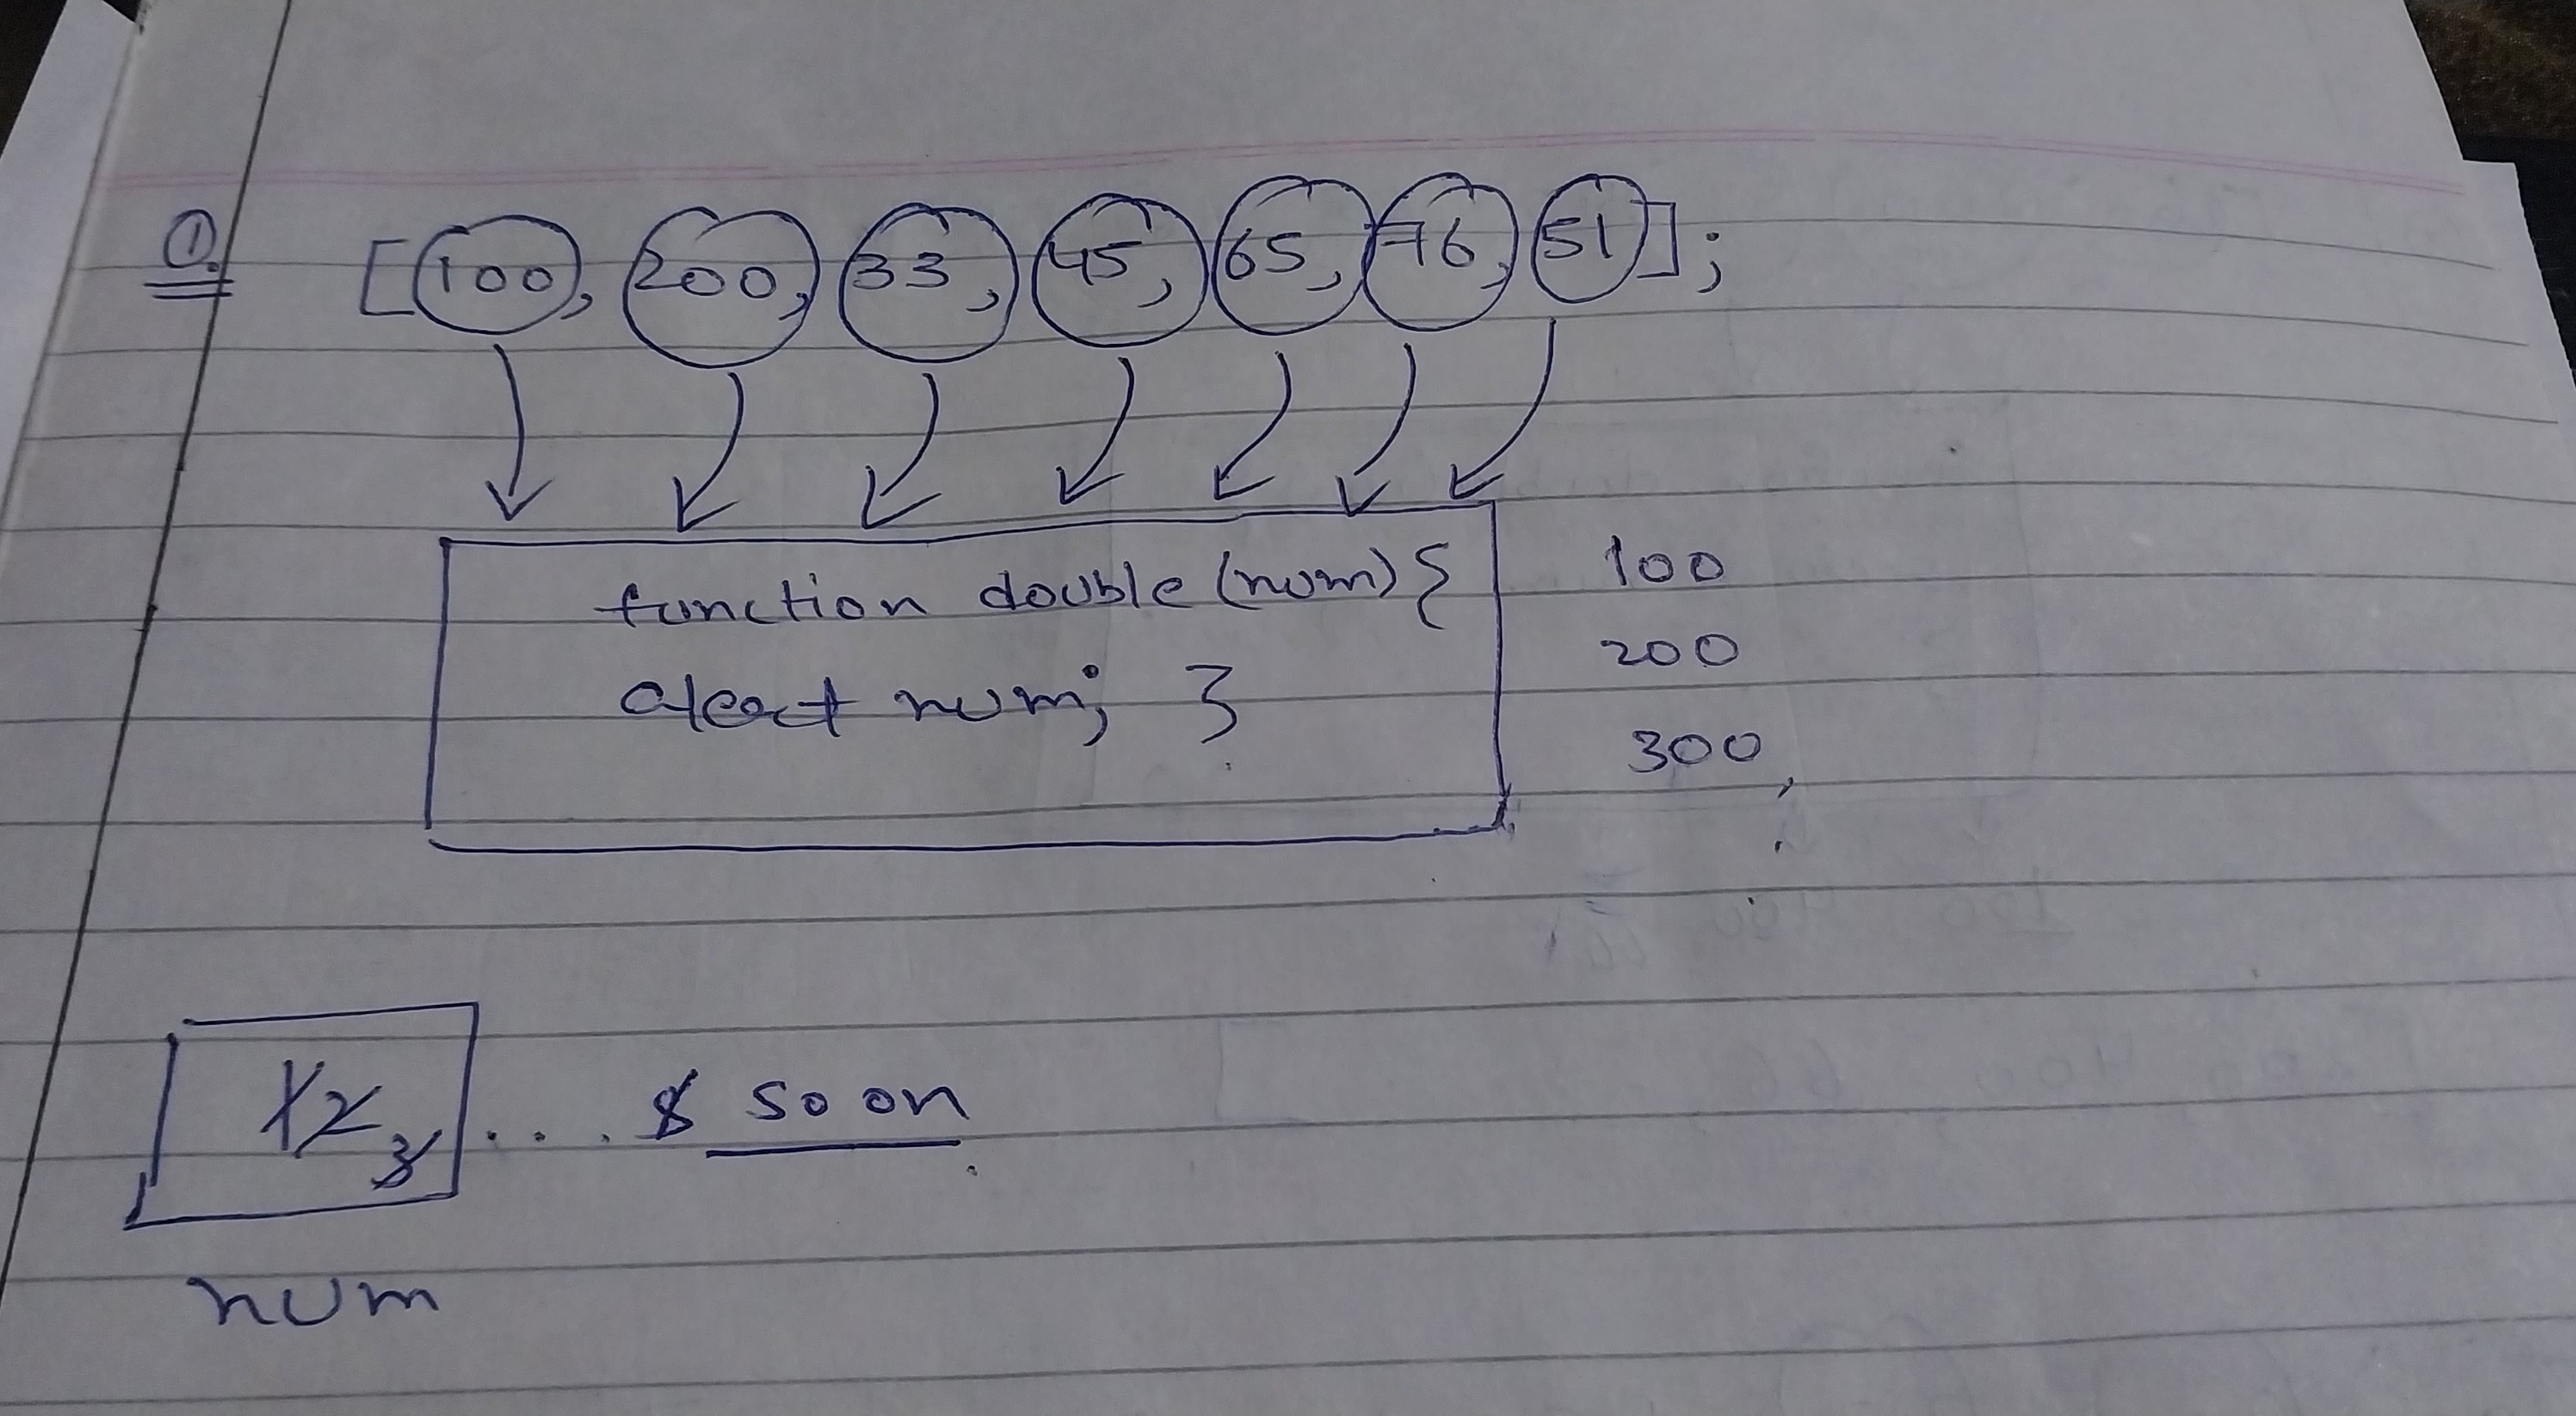 ①.
[100, 200, 33, 45, 65, 76, 51];
function double (num) {
alert num; }
100
200
300,
1 2 3 . . . . & so on.
num